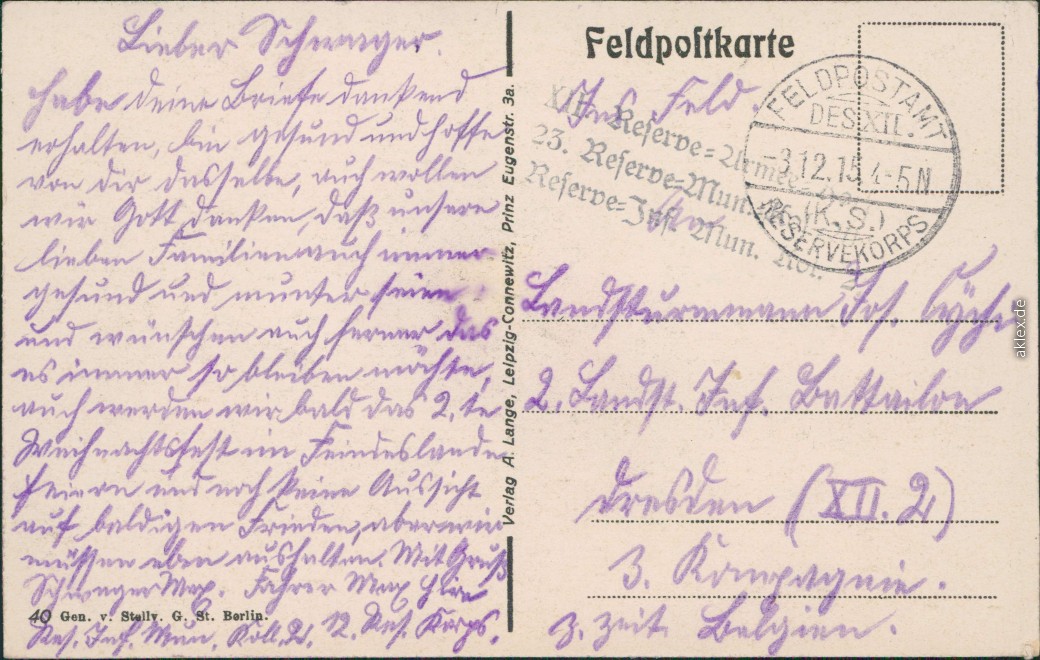 Lieber Schwager.
habe deine Briefe dankend
erhalten, bin gesund und hoffe
von dir dasselbe, auch wollen
wir Gott danken, daß unsere
lieben Familien auch immer
gesund und munter seien
und wünschen auch ferner das
es immer so bleiben möchte,
auch werden wir bald das 2. te
Weihnachtsfest im Feindeslande
feiern und noch keine Aussicht
auf baldigen Frieden, aber wir
müssen eben aushalten. Mit Gruß
Schwager Max. Fahrer Max
40 Gen. v. Stellv. G. St. Berlin.
Res. Inf. Mun. Koll. 2. 12. Res. Korps.
Verlag A. Lange, Leipzig-Connewitz, Prinz Eugenstr. 3a.
Feldpostkarte
Ins Feld.
XII. Reserve=Armee=
23. Reserve=Mun.
Reserve=Inf. Mun. Kol. 2
FELDPOSTAMT
DES XII.
-3.12.15 4-5N
(K.S.)
RESERVEKORPS
An
Landsturmmann Jos.
2. Landst. Inf. Battailon
Dresden (XII. 2)
3. Kompagnie.
z. Zeit Belgien.
aklex.de